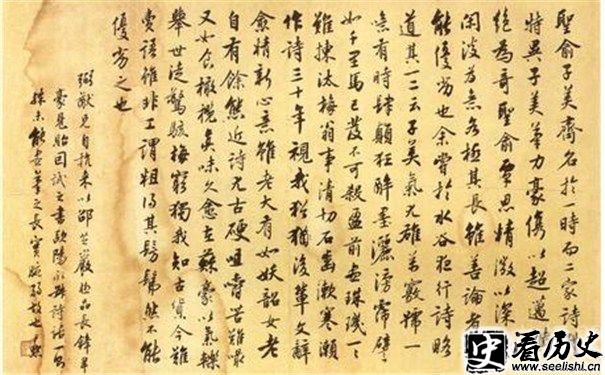 聖俞子美齊名於一時而二家詩
特異子美筆力豪儁以超邁
絕為奇聖俞覃思精微以深
閑淡為意各極其長雖善論者
能優劣也余嘗於水谷夜行詩略
道其一二云子美氣尤雄萬竅號一
噫有時肆顛狂醉墨灑滂霈譬
如千里馬已發不可殺盈前盡珠璣一一
難揀汰梅翁事清切石齒漱寒瀨
作詩三十年視我猶後輩文辭
愈精新心意雖老大有如妖韶女老
自有餘態近詩尤古硬咀嚼苦難嘬
又如食橄欖真味久愈在蘇豪以氣轢
舉世徒驚駭梅窮獨我知古貨今難
賣語雖非工謂粗得其髣髴然不能
優劣之也
弼猷兄自揚來以邵芝巖極品長鋒羊
毫見貽因試之書歐陽永叔詩話一則
殊未能盡筆之長實腕弱故也
史 看历史
www.seelishi.cn